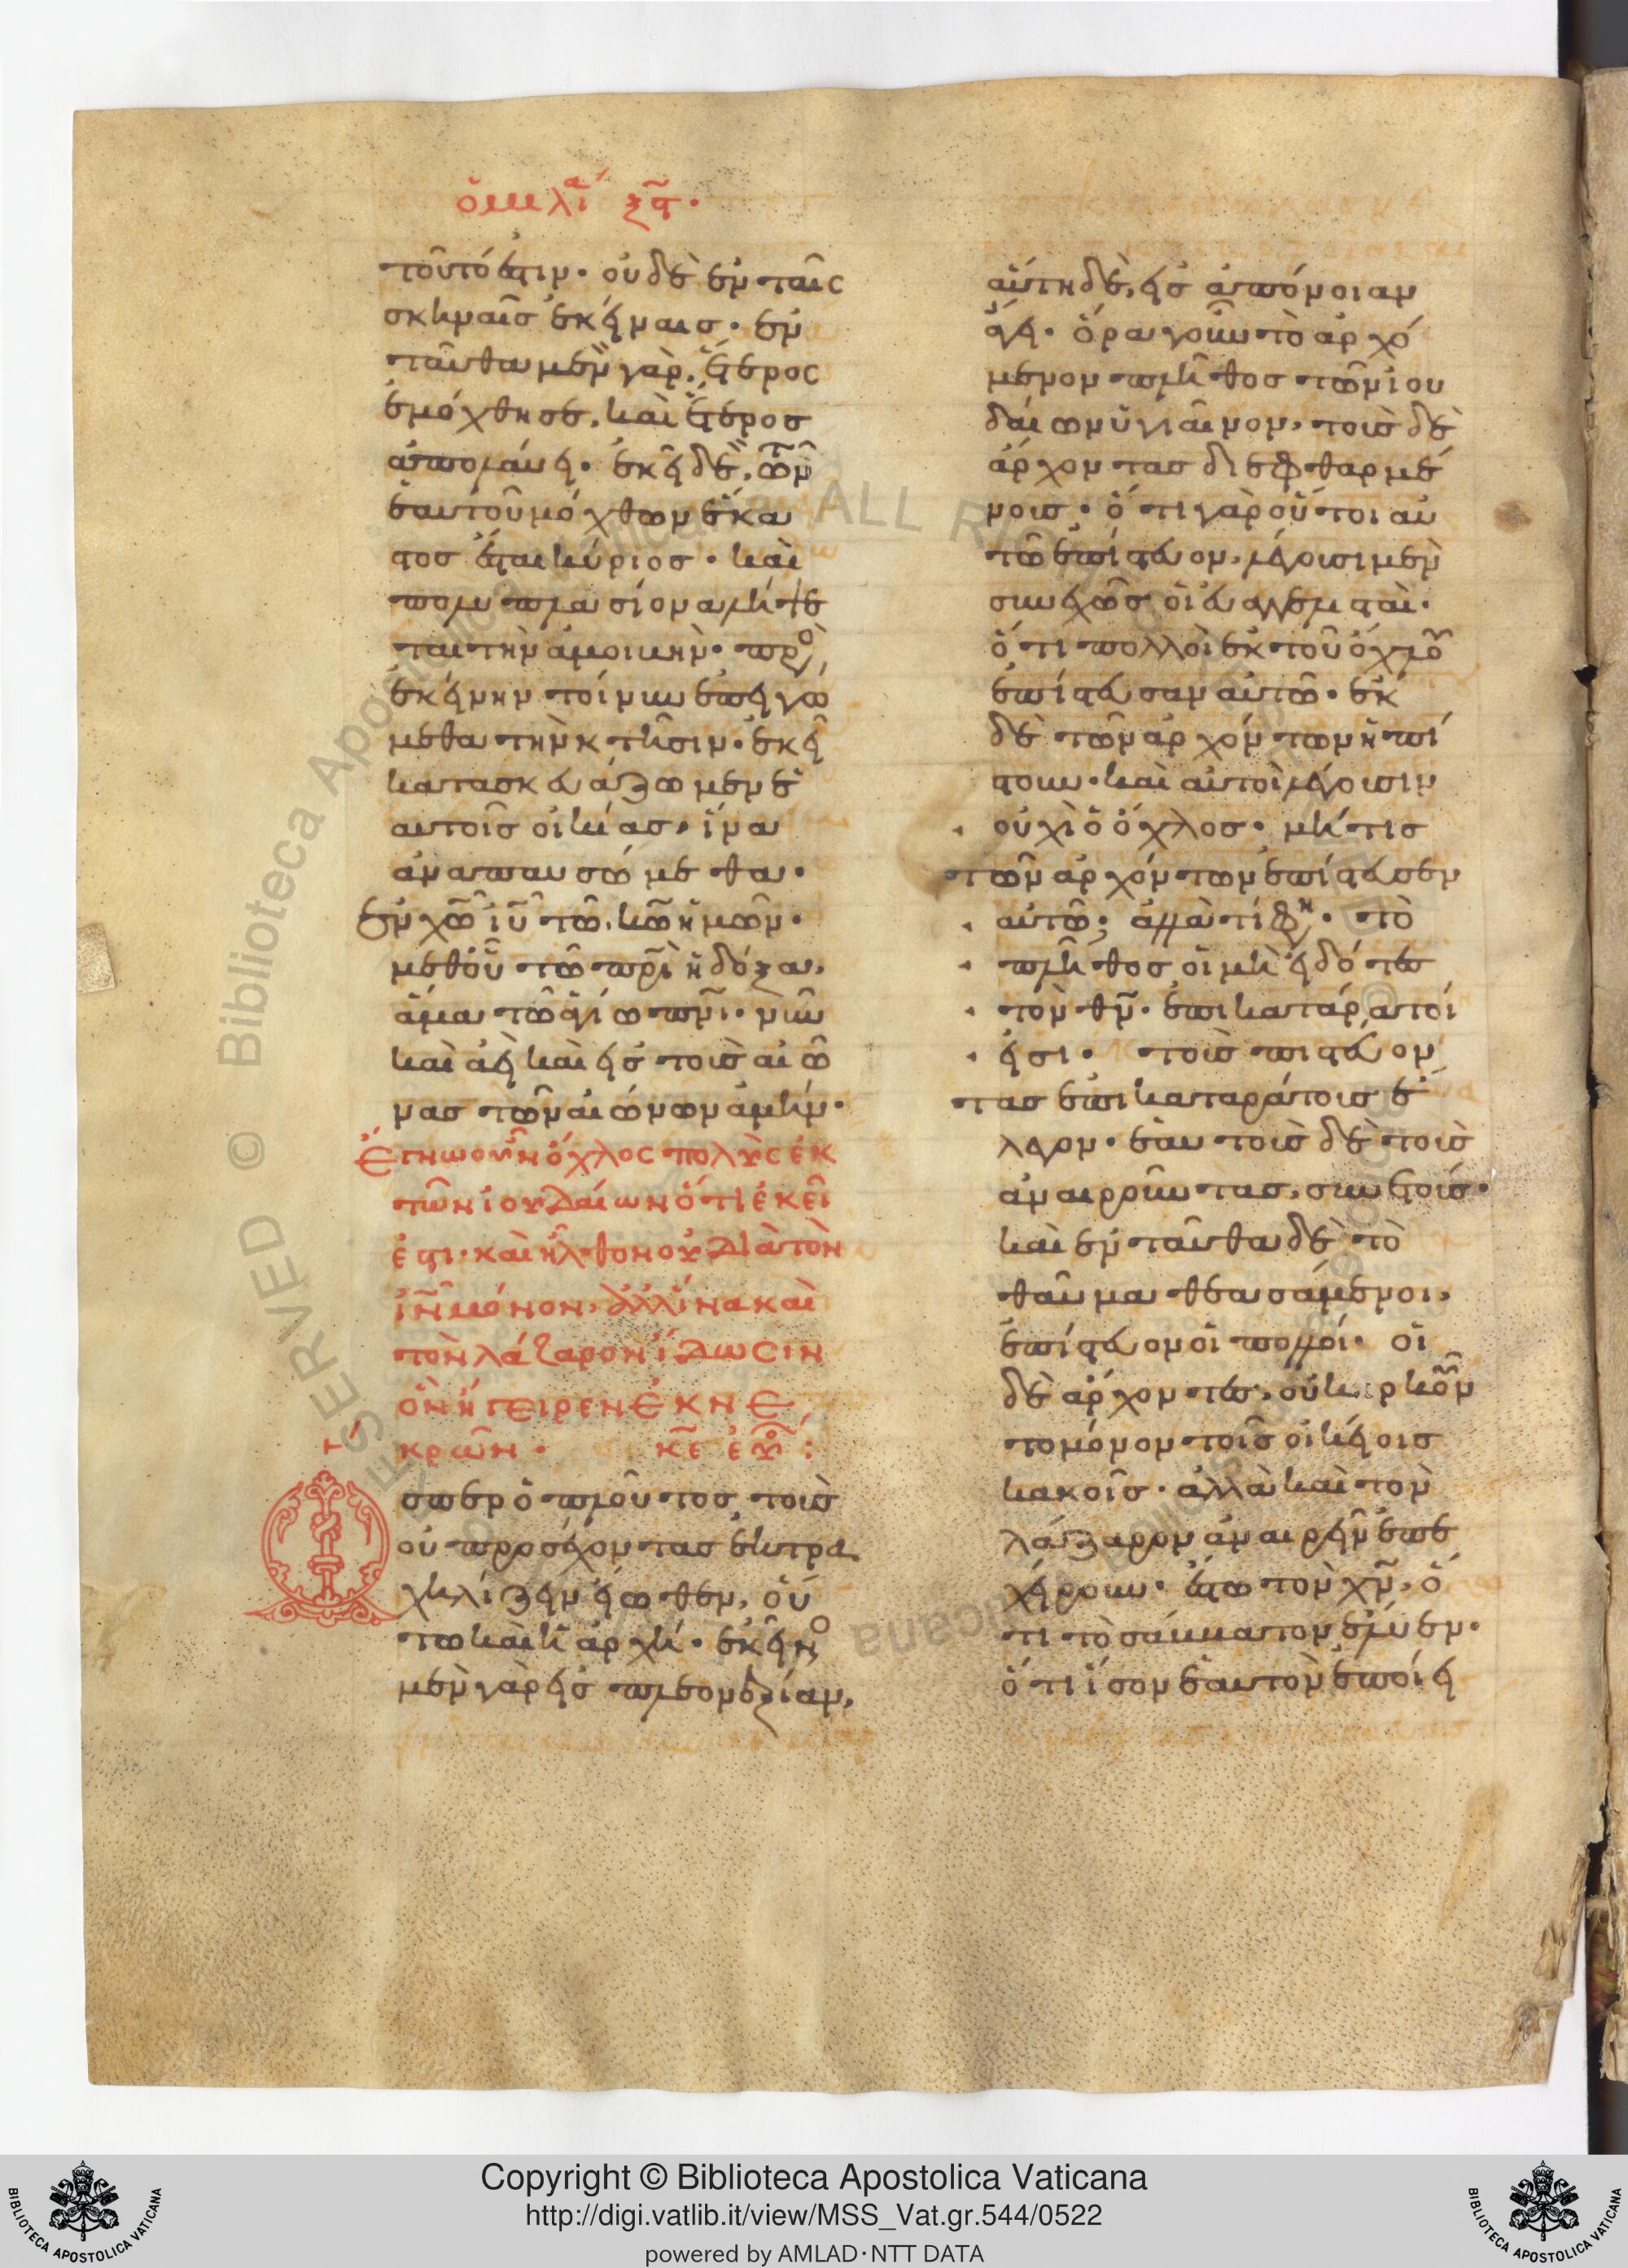 ὁμιλία ξϛ·
τοῦτό ἐστιν· οὐδὲ ἐν ταῖς
σκηναῖς ἐκείναις· ἐν
ταῦθα μὲν γὰρ, ἕτερος
ἐμόχθησε, καὶ ἕτερος
ἀπολαύει· ἐκεῖ δὲ, τῶν
ἑαυτοῦ μόχθων ἕκα
στος ἔσται κύριος· καὶ
πολυπλασίονα λήψε
ται τὴν ἀμοιβὴν· πρὸς
ἐκείνην τοίνυν ἐπειγώ
μεθα τὴν κτῆσιν· ἐκεῖ
κατασκευάζωμεν ἑ
αυτοῖς οἰκίας, ἵνα
ἀναπαυσώμεθα·
ἐν χω ιυ τῶ κω ἡμῶν·
μεθοῦ τῶ πρι ἡ δόξα,
ἅμα τῶ ἁγίω πνι· νῦν
καὶ ἀεὶ καὶ εἰς τοὺς αἰῶ
νας τῶν αἰώνων ἀμήν·
Ἔγνω οὖν ὄχλος πολὺς ἐκ
τῶν ἰουδαίων ὅτι ἐκεῖ
ἐστι· καὶ ἦλθον οὐ διὰ τὸν
ιν μόνον, ἀλλ' ἵνα καὶ
τὸν λάζαρον ἴδωσιν
ὃν ἤγειρεν ἐκ νε
κρῶν·
Ὥσπερ ὁ πλοῦτος τοὺς
οὐ προσέχοντας ἐκτρα
χηλίζειν εἴωθεν, οὕ
τω καὶ ἡ ἀρχή· ἐκεῖνος
μὲν γὰρ εἰς πλεονεξίαν,
αὕτη δὲ, εἰς ἀπόνοιαν
ἄγει· ὅρα γοῦν τὸ ἀρχό
μενον πλῆθος τῶν ἰου
δαίων ὑγιαῖνον, τοὺς δὲ
ἄρχοντας διεφθαρμέ
νους· ὅτι γὰρ οὗτοι αὐ
τῶ ἐπίστευον, λέγουσι μὲν
συνεχῶς οἱ εὐαγγελισταὶ·
ὅτι πολλοὶ ἐκ τοῦ ὄχλου
ἐπίστευσαν αὐτῶ· ἐκ
δὲ τῶν ἀρχόντων ἠπί
στουν· καὶ αὐτοὶ λέγουσιν
οὐχὶ ὁ ὄχλος· μή τις
τῶν ἀρχόντων ἐπίστευσεν
αὐτῶ; ἀλλὰ τί φησι· τὸ
πλῆθος οἱ μὴ εἰδότες
τὸν θν· ἐπικατάρατοί
εἰσι· τοὺς πιστεύον
τας ἐπικαταράτους ἔ
λεγον· ἑαυτοὺς δὲ τοὺς
ἀναιροῦντας, συνετούς·
καὶ ἐνταῦθα δὲ τὸ
θαῦμα θεασάμενοι,
ἐπίστευον οἱ πολλοί· οἱ
δὲ ἄρχοντες, οὐκ ἠρκοῦν
το μόνον τοῖς οἰκείοις
κακοῖς· ἀλλὰ καὶ τὸν
λάζαρον ἀναιρεῖν ἐπε
χείρουν· ἔστω τὸν χν, ὅ
τι τὸ σάββατον ἔλυεν·
ὅτι ἴσον ἑαυτὸν ἐποίει
Copyright © Biblioteca Apostolica Vaticana
http://digi.vatlib.it/view/MSS_Vat.gr.544/0522
powered by AMLAD·NTT DATA